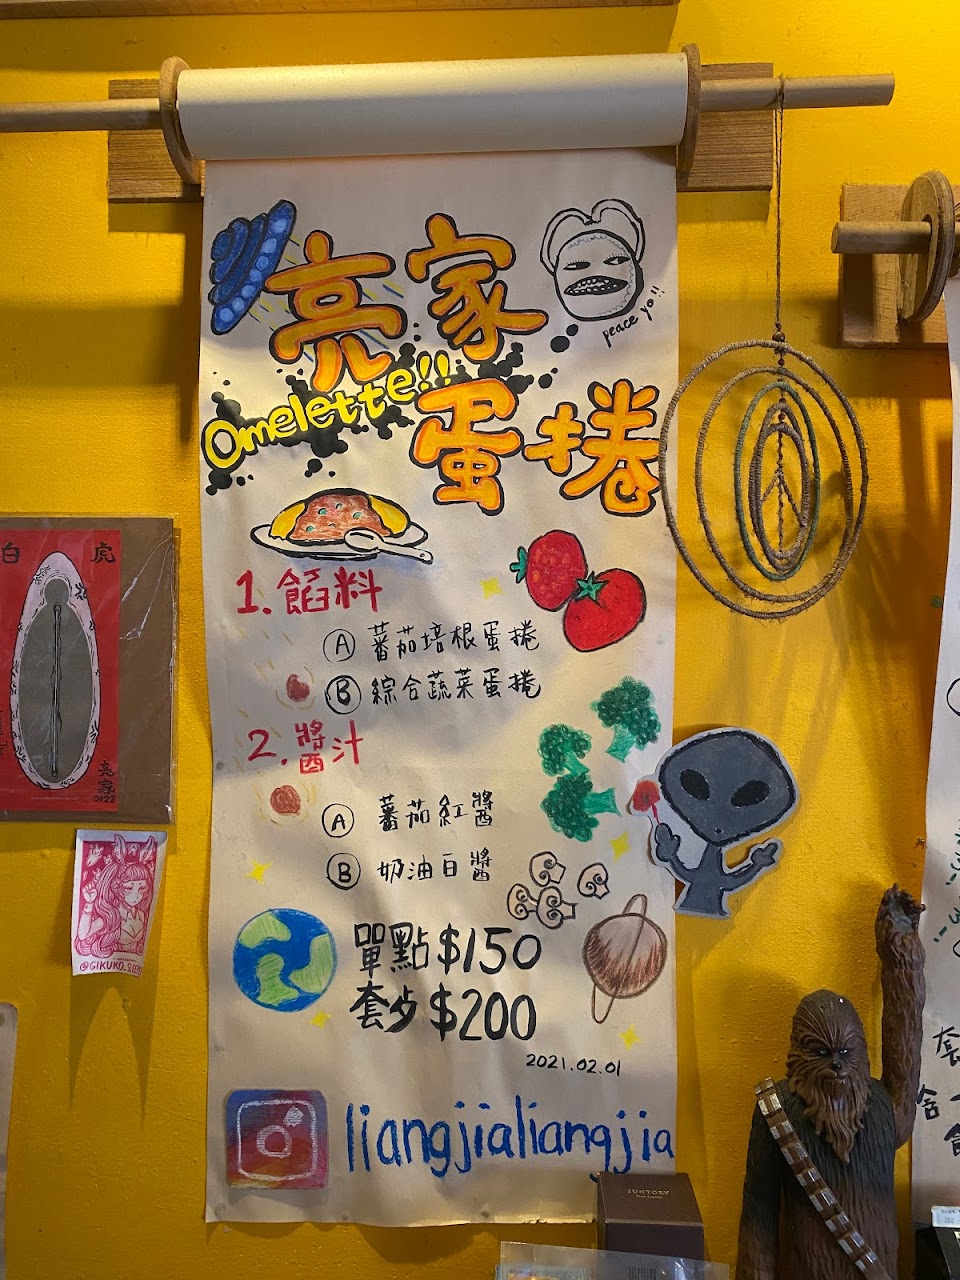 亮家
peace yo!!
Omelette!!
蛋捲
1. 餡料
Ⓐ 蕃茄培根蛋捲
Ⓑ 綜合蔬菜蛋捲
2. 醬汁
Ⓐ 蕃茄紅醬
Ⓑ 奶油白醬
單點$150
套歺$200
2021.02.01
liangjialiangjia
白 虎
亮家
2022
SUNTORY
套